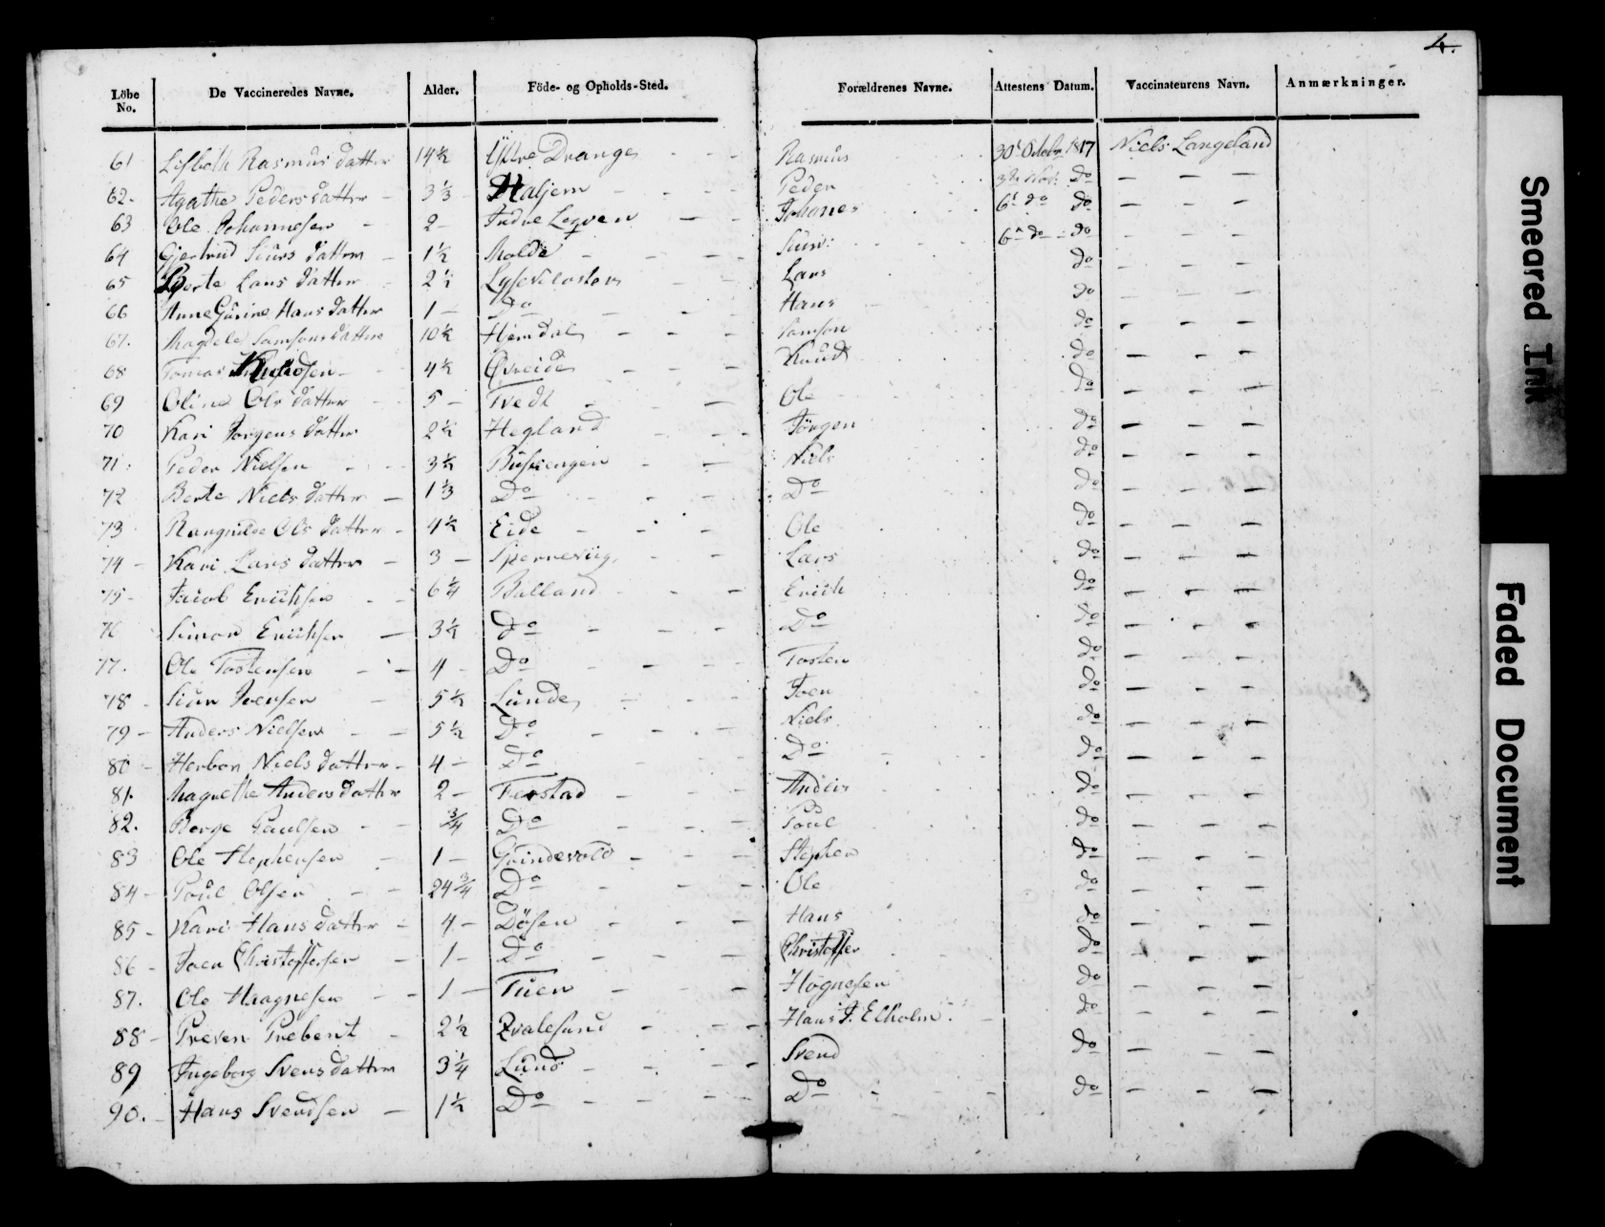 4.
Löbe No. De Vaccineredes Navne. Alder. Föde- og Opholds-Sted. Forældrenes Navne. Attestens Datum. Vaccinateurens Navn. Anmærkninger.
61 Lisbeth Rasmus datter 14½ Ÿstre Drange - - Rasmus 30t Octobr 1817 Niels Langeland
62. Agathe Peders datter - 3⅓ Haljem - - - Peder 3de Nov: do — — —
63 Ole Johannesen - 2 - Indre Leqven - - Johanes 6t do do — - —
64 Gjertrud Siurs datter - 1½ Molde - - - Siur: 6t do - do — - —
65 Berte Lars datter 2½ Lysekloster - - Lars do — - —
66 Anne Gurine Hans datter 1 - Do - - - Hans do — - —
67. Magdele Samsons datter 10½ Hjemdal - - - Samson do - - —
68 Tomas Knudsen - 4½ Øvreide - - - Knud do — - —
69 Oline Ols datter 5 - Tvedt - - Ole do — - —
70 Kari Jorgens datter 2½ Hegland - - Jörgen do — - —
71. Peder Nielsen - - 3½ Busÿengen - - Niels do — - —
72 Berte Niels datter - 1⅓ Do - - - Do do — - —
73 Rangnilde Ols datter - 4½ Eide - - - Ole do — - —
74 - Kari Lars datter - 3 - Spernevüg - - Lars do — - —
75 - Jacob Erichsen - - 6¼ Balland - - Erich do — - —
76 Simon Erichsen - 3½ Do - - - Do do — - —
77. Ole Tostensen - - 4 - Do - - - Tosten do — - —
78 - Siur Joensen - 5½ Lunde - - Joen do — - —
79 - Anders Nielsen - - 5½ Do - - - Niels do — - —
80 - Herbor Niels datter - 4 - Do - - Do do — - —
81. Magnethe Anders datter 2 - Ferstad - - - Anders do — - —
82. Borge Paulsen - - ¾ Do - - - Poul do — - —
83 Ole Stephensen - 1 - Grindevold - - - Stephen do — - —
84 - Poul Olsen - - 24¾ Do - - - Ole do — - —
85 - Kari Hans datter - 4 - Dösen - - - Hans do — - —
86 - Joen Christoffersen - 1 - Do - - - Christoffer do — - —
87. Ole Haagnesen - - 1 - Tuen - - - Högnesen do — - —
88 - Preven Prebent - 2½ Qvalesund - - - Hans J. Elholm. do — - —
89 Ingeborg Svens datter 3¼ Lund - - - Svend do — - —
90. - Hans Svendsen - 1½ Do - - - Do do — - —
Smeared Ink
Faded Document